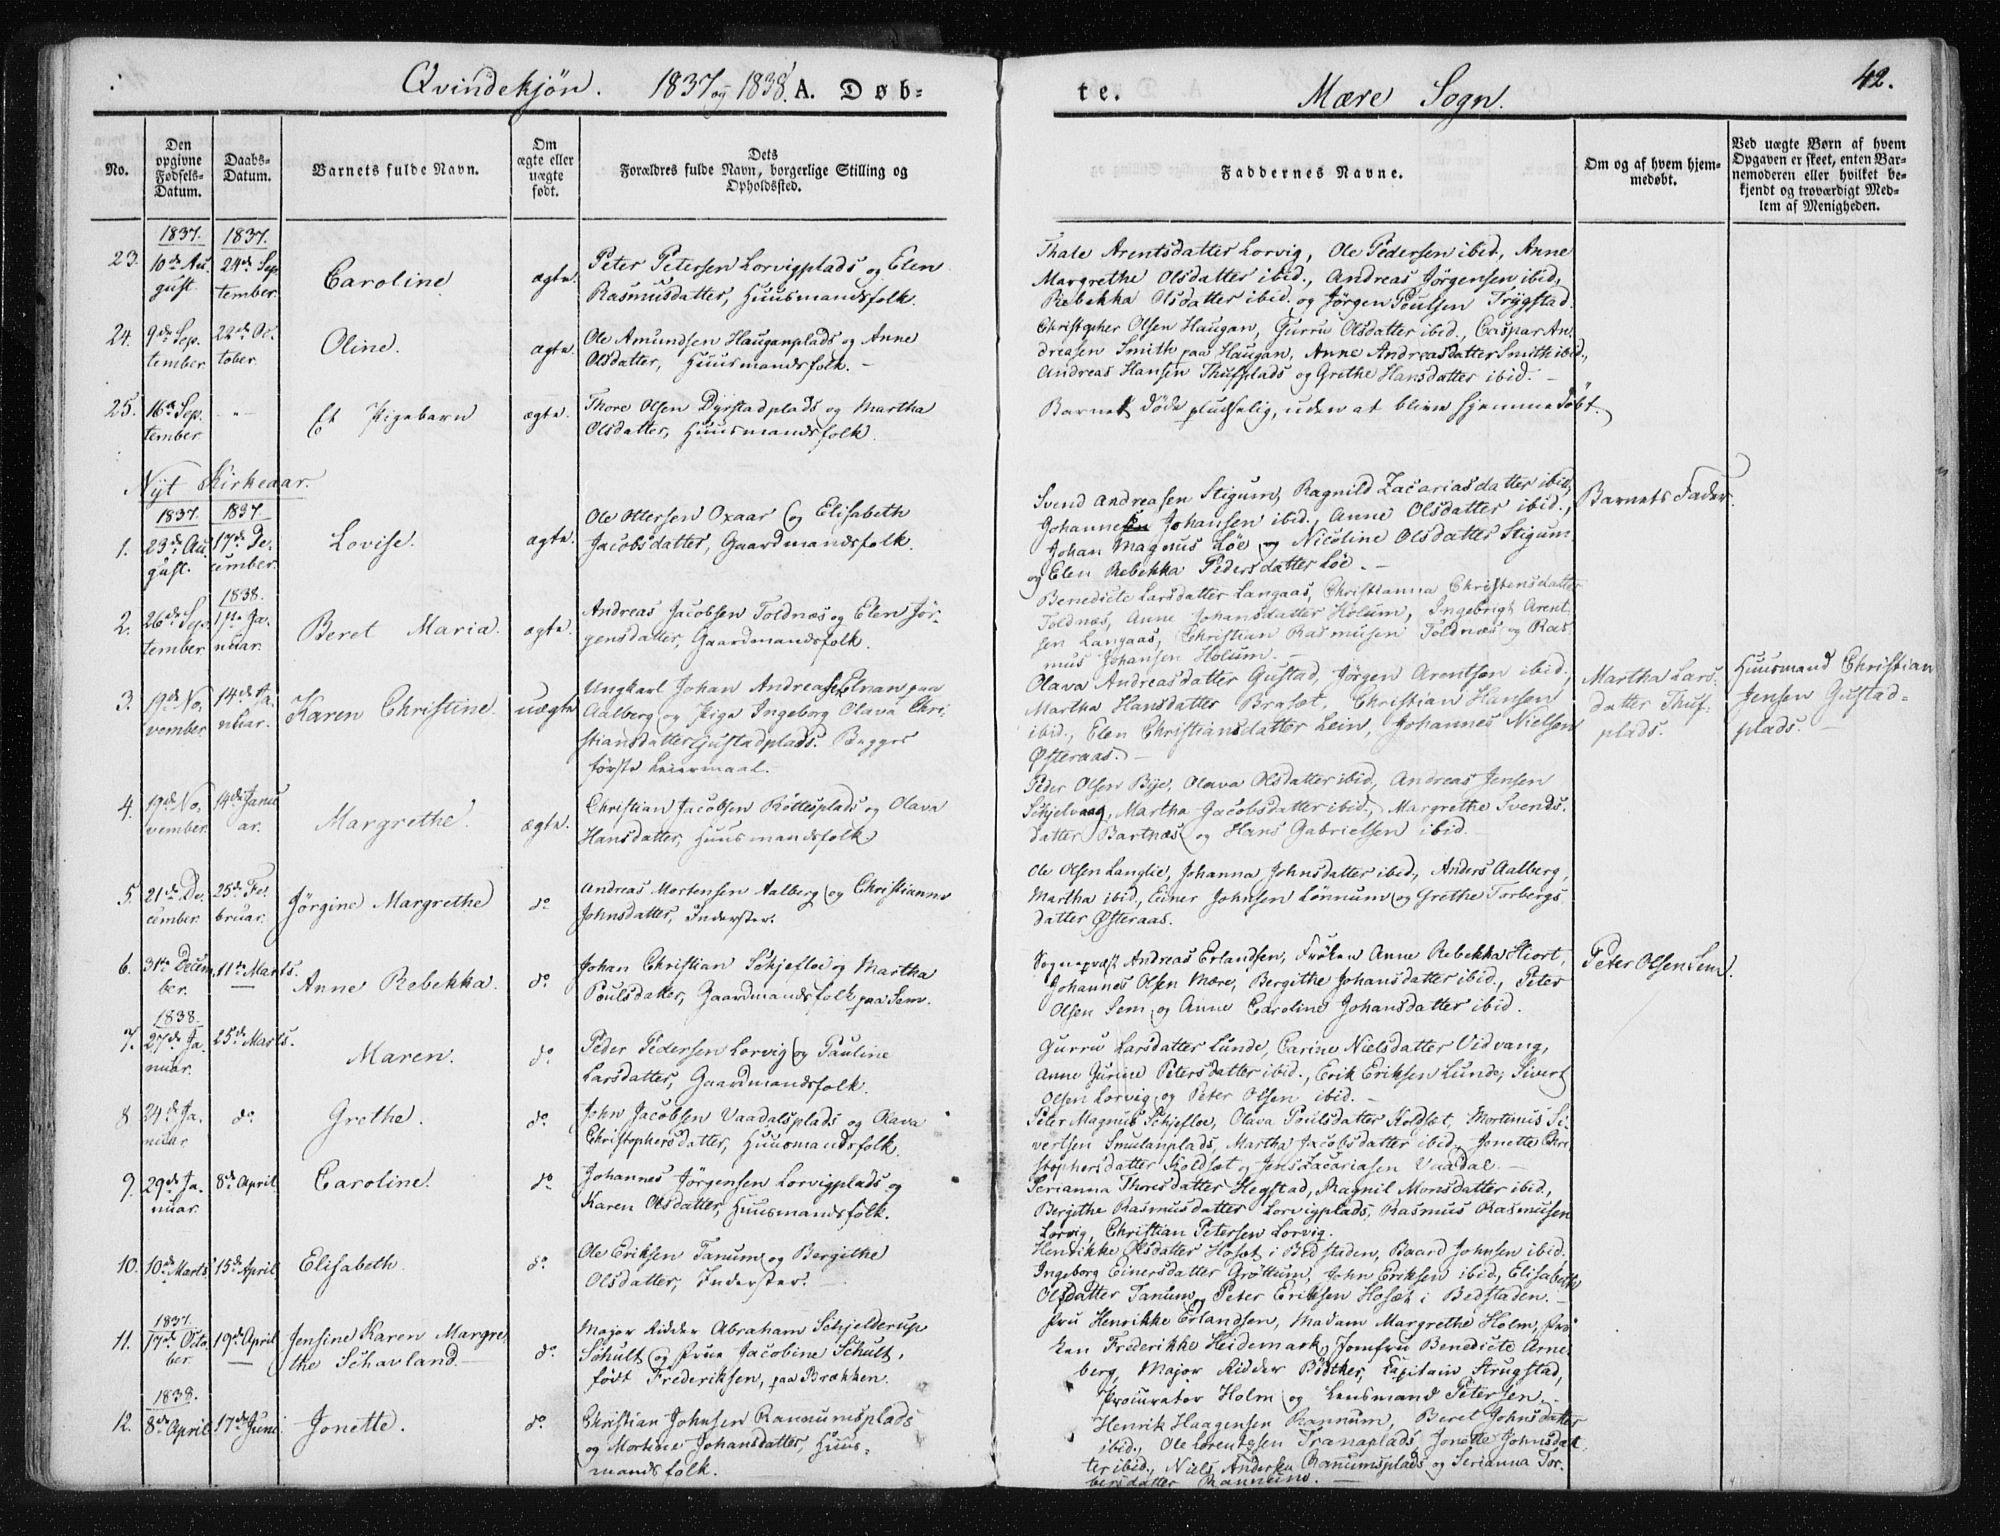 Qvindekjøn. 1837 og 1838. A. Døb-
te. Mære Sogn. 42.
No.
Den opgivne Fødsels-Datum.
Daabs-Datum.
Barnets fulde Navn.
Om ægte eller uægte født.
Dets Forældres fulde Navn, borgerlige Stilling og Opholdssted.
Faddernes Navne.
Om og af hvem hjem-
medøbt.
Ved uægte Børn af hvem
Opgaven er skeet, enten Bar-
nemoderen eller hvilket be-
kjendt og troværdigt Med-
lem af Menigheden.
1837. 1837.
23. 10de Au- 24de Sep-
gust. tember.
Caroline. ægte.
Peter Petersen Lorvigplads og Elen
Rasmusdatter, Huusmandsfolk.
Thale Arentsdatter Lorvig, Ole Pedersen ibid., Anne
Margrethe Olsdatter ibid., Andreas Jørgensen ibid.,
Rebekka Olsdatter ibid. og Jørgen Poulsen Trygstad.
24. 9de Sep- 22de Oc-
tember tober.
Oline. ægte.
Ole Amundsen Hauganplads og Anne
Olsdatter, Huusmandsfolk. -
Christopher Olsen Haugan, Gurru Olsdatter ibid., Caspar An-
dreasen Smith paa Haugan, Anne Andreasdatter Smith ibid.,
Andreas Hansen Thufplads og Grethe Hansdatter ibid. -
25. 16de Sep- -"-
tember.
Et Pigebarn ægte.
Thore Olsen Dyrstadplads og Martha
Olsdatter, Huusmandsfolk.
Barnet døde pludselig, uden at blive hjemmedøbt.
Nyt Kirkeaar.
1837. 1837
1. 23de Au- 17de De-
gust. cember.
Lovise. ægte.
Ole Ottersen Oxaar og Elisabeth
Jacobsdatter, Gaardmandsfolk.
Svend Andreasen Stigum, Ragnild Zacariasdatter ibid.,
Johannes Johansen ibid., Anne Olsdatter ibid.,
Johan Magnus Løe og Nicoline Olsdatter Stigum
og Elen Rebekka Pedersdatter Løe. -
Barnets Fader.
1838.
2. 26de Sep- 1ste Ja-
tember nuar.
Beret Maria. ægte.
Andreas Jacobsen Toldnæs og Elen Jør-
gensdatter, Gaardmandsfolk.
Benedicte Larsdatter Langaas, Christianna Christensdatter
Toldnæs, Anne Johansdatter Holum, Ingebrigt Arent-
sen Langaas, Christian Rasmusen Toldnæs og Ras-
mus Johansen Holum. -
3. 19de No- 14de Ja-
vember nuar.
Karen Christine. uægte
Ungkarl Johan Andreasen Elnan paa
Aalberg og Pige Ingeborg Olava Chri-
stiansdatter Gustadplads. Begges
første Leiermaal.
Olava Andreasdatter Gustad, Jørgen Arentsen ibid.,
Martha Hansdatter Braset, Christian Hansen
ibid., Elen Christiansdatter Lein, Johannes Nielsen
Østeraas. -
Martha Lars-
datter Thuf-
plads.
Huusmand Christian
Jensen Gustad-
plads. -
4. 19de No- 14de Janu-
vember. ar.
Margrethe. ægte.
Christian Jacobsen Røttesplads og Olava
Hansdatter, Huusmandsfolk
Peder Olsen Bye, Olava Olsdatter ibid., Andreas Jensen
Schjelvaag, Martha Jacobsdatter ibid., Margrethe Svends-
datter Bartnæs og Hans Gabrielsen ibid.
5. 21de De- 25de Fe-
cember. bruar.
Jørgine Margrethe do.
Andreas Mortensen Aalberg og Christianne
Johnsdatter, Inderster.
Ole Olsen Langlie, Johanna Johnsdatter ibid., Anders Aalberg,
Martha ibid., Einer Johnsen Lønnum og Grethe Torbergs-
datter Østeraas.
6. 31te Decem- 11te Marts.
ber.
Anne Rebekka. do.
Johan Christian Schjefloe og Martha
Poulsdatter, Gaardmandsfolk paa Sem.
Sognepræst Andreas Erlandsen, Frøken Anne Rebekka Hiort,
Johannes Olsen Mære, Bergithe Johansdatter ibid., Peter
Olsen Sem og Anne Caroline Johansdatter ibid.
Peter Olsen Sem.
1838.
7. 27de Ja- 25de Marts.
nuar.
Maren. do.
Peder Pedersen Lorvig og Pauline
Larsdatter, Gaardmandsfolk.
Gurru Larsdatter Lunde, Carine Nielsdatter Vidvang,
Anne Gurine Petersdatter ibid., Erik Eriksen Lunde, Sivert
Olsen Lorvig og Peter Olsen ibid. -
8 24de Ja- do.
nuar
Grethe. do.
John Jacobsen Vaadalsplads og Olava
Christophersdatter, Huusmandsfolk.
Peter Magnus Schjefloe, Olava Poulsdatter Koldset, Mortinus Si-
vertsen Smulanplads, Martha Jacobsdatter ibid., Jonette Chri-
stophersdatter Koldset og Jens Zacariasen Vaadal. -
9. 29de Ja- 8de April.
nuar.
Caroline. do.
Johannes Jørgensen Lorvigplads og
Karen Olsdatter, Huusmandsfolk.
Serianna Thoresdatter Hegstad, Ragnil Monsdatter ibid.,
Bergithe Rasmusdatter Lorvigplads, Rasmus Rasmusen
Lorvig, Christian Petersen Lorvig.
10. 10de Marts 15de April
Elisabeth. do.
Ole Eriksen Tanum og Bergithe
Olsdatter, Inderster. -
Henrikke Olsdatter Hoset i Bedstaden, Baard Johnsen ibid.
Ingeborg Einersdatter Grøttum, John Eriksen ibid., Elisabeth
Olsdatter Tanum, Peter Eriksen Hoset i Bedstaden. -
1837.
11. 17de Octo- 19de April
ber.
Jensine Karen Margre-
the Schavland. - do.
Major Ridder Abraham Schjelderup
Schult og Frue Jacobine Schult,
født Frederiksen, paa Brækken.
Fru Henrikke Erlandsen, Madam Margrethe Holm, Frø-
ken Frederikke Heidemark, Jomfru Benedicte Arne-
berg, Major Ridder Bødtker, Kapitain Strugstad,
Procurator Holm og Lensmand Petersen.
1838.
12. 8de April 17de Juni
Jonette. do.
Christian Johnsen Rannumsplads
og Mortine Johansdatter, Huus-
mandsfolk.
Henrik Haagensen Rannum, Beret Johnsdatter
ibid., Ole Lorentsen Tranaplads, Jonette Johnsdat-
ter ibid., Niels Andersen Ranumsplads og Serianna Tor-
bersdatter Rannum. -